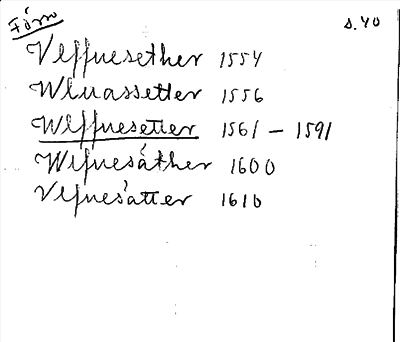 Förro s. 40
Vleffuesether 1554
Wluassetter 1556
Wlffuesetter 1561 – 1591
Wlfuesäther 1600
Vlfuesätter 1610